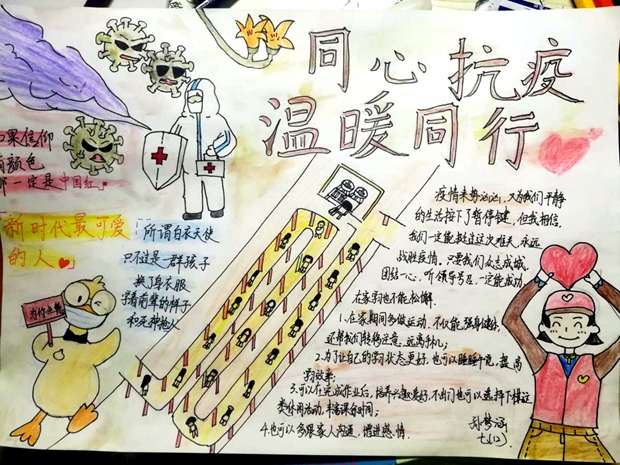 同心抗疫
温暖同行
如果信仰
有颜色
那一定是中国红」
新时代最可爱
的人
「所谓白衣天使
只不过是一群孩子
换了身衣服
学着前辈的样子
和死神抢人
疫情来势汹汹,又为我们平静
的生活按下了暂停键,但我相信,
我们一定能挺过这次难关,永远
战胜疫情。只要我们众志成城,
团结一心,听领导号召,一定能成功。
在家学习也不能松懈
1.在家期间多做运动,不仅能强身健体,
还帮我们转移注意,远离手机;
2.为了让自己的学习状态更好,也可以睡睡午觉,提高
学习效率;
3.可以在完成作业后,培养兴趣爱好,不出门也可以选择下棋这
类休闲活动,丰富课余时间;
4.也可以多跟家人沟通,增进感情。
孙梦涵
七(12)